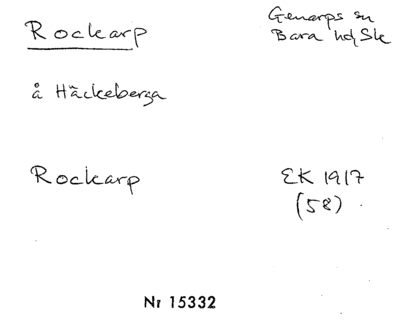 Rockarp
Genarps sn
Bara hd, Sk
å Häckeberga
Rockarp
EK 1917
(58)
Nr 15332